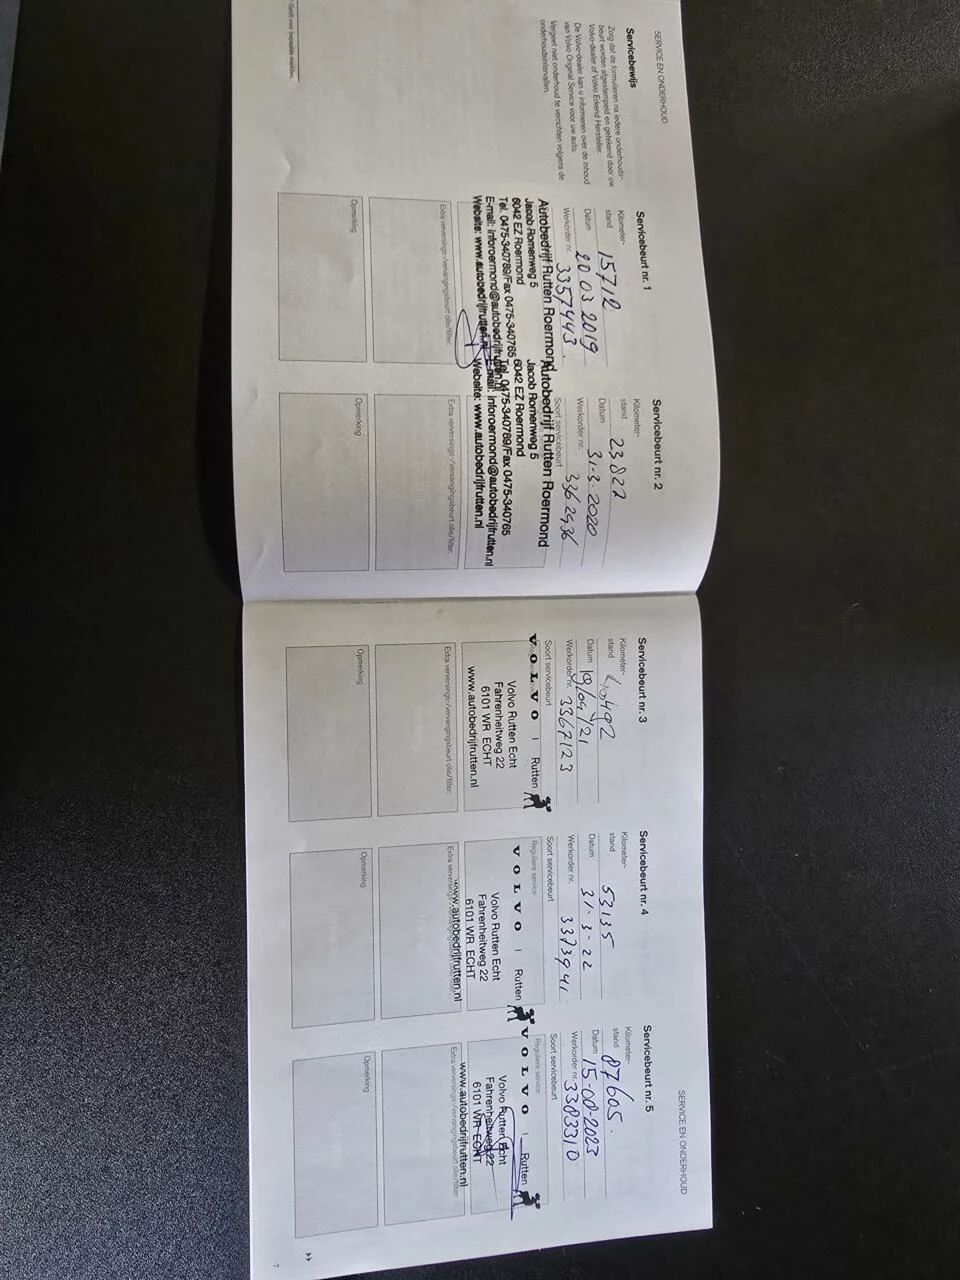 SERVICE EN ONDERHOUD
Servicebewijs
Zorg dat de formulieren na iedere onderhouds-
beurt worden afgestempeld en getekend door uw
Volvo-dealer of Volvo Erkend Hersteller.
De Volvo-dealer kan u informeren over de inhoud
van Volvo Original Service voor uw auto.
Vergeet niet onderhoud te verrichten volgens de
onderhoudsintervallen.
Geldt voor bepaalde markten.
Servicebeurt nr. 1
Kilometer-
stand 15712
Datum 20 03 2019
Werkorder nr. 3357443.
Autobedrijf Rutten Roermond
Jacob Romenweg 5
6042 EZ Roermond
Tel. 0475-340789/Fax 0475-340765
E-mail: inforoermond@autobedrijfrutten.nl
Website: www.autobedrijfrutten.nl
Extra verversings-/vervangingsbeurt olie/filter:
Opmerking
Servicebeurt nr. 2
Kilometer-
stand 23822
Datum 31-3-2020
Werkorder nr. 3362436
Soort servicebeurt
Autobedrijf Rutten Roermond
Jacob Romenweg 5
6042 EZ Roermond
Tel. 0475-340789/Fax 0475-340765
E-mail: inforoermond@autobedrijfrutten.nl
Website: www.autobedrijfrutten.nl
Extra verversings-/vervangingsbeurt olie/filter:
Opmerking
Servicebeurt nr. 3
Kilometer-
stand
Datum
Werkorder nr. 3367123
Soort servicebeurt
VOLVO | Rutten
Volvo Rutten Echt
Fahrenheitweg 22
6101 WR ECHT
www.autobedrijfrutten.nl
Extra verversings-/vervangingsbeurt olie/filter:
Opmerking
Servicebeurt nr. 4
Kilometer-
stand 53135
Datum 31-3-22
Werkorder nr. 3373941
Soort servicebeurt
Reguliere service
VOLVO | Rutten
Volvo Rutten Echt
Fahrenheitweg 22
6101 WR ECHT
www.autobedrijfrutten.nl
Opmerking
SERVICE EN ONDERHOUD
Servicebeurt nr. 5
Kilometer-
stand 87605.
Datum 15-08-2023
Werkorder nr. 3383310
Soort servicebeurt
Reguliere service
VOLVO | Rutten
Volvo Rutten Echt
Fahrenheitweg 22
6101 WR ECHT
www.autobedrijfrutten.nl
Extra verversings-/vervangingsbeurt olie/filter:
Opmerking
7